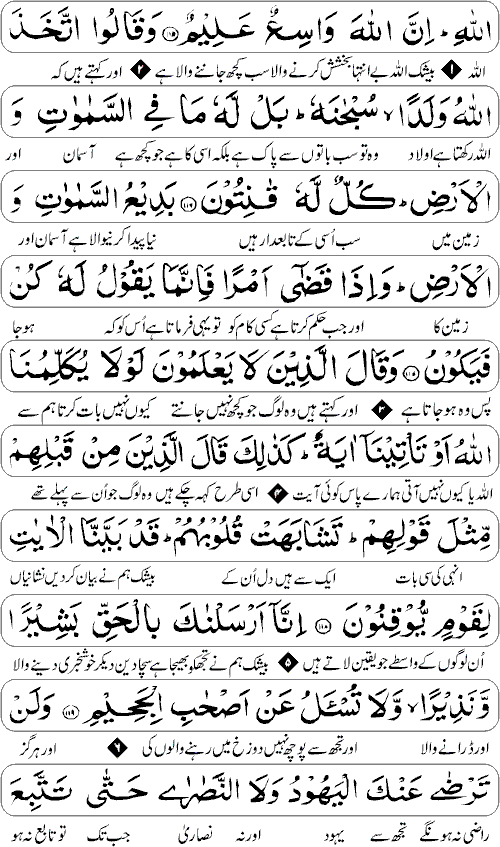 اللهِ ؕ اِنَّ اللهَ وَاسِعٌ عَلِيْمٌ ۝۱۱۵ وَقَالُوا اتَّخَذَ
اللہ ۱ بیشک اللہ بے انتہا بخشش کرنے والا سب کچھ جاننے والا ہے ۲ اور کہتے ہیں کہ
اللهُ وَلَدًا ۙ سُبْحٰنَهٗ ؕ بَلْ لَّهٗ مَا فِي السَّمٰوٰتِ وَ
اللہ رکھتا ہے اولاد وہ تو سب باتوں سے پاک ہے بلکہ اسی کا ہے جو کچھ ہے آسمان اور
الْاَرْضِ ؕ كُلٌّ لَّهٗ قٰنِتُوْنَ ۝۱۱۶ بَدِيْعُ السَّمٰوٰتِ وَ
زمین میں سب اُسی کے تابعدار ہیں نیا پیدا کرنیوالا ہے آسمان اور
الْاَرْضِ ؕ وَاِذَا قَضٰٓى اَمْرًا فَاِنَّمَا يَقُوْلُ لَهٗ كُنْ
زمین کا اور جب حکم کرتا ہے کسی کام کو تو یہی فرماتا ہے اُس کو کہ ہو جا
فَيَكُوْنُ ۝۱۱۷ وَقَالَ الَّذِيْنَ لَا يَعْلَمُوْنَ لَوْلَا يُكَلِّمُنَا
پس وہ ہو جاتا ہے ۳ اور کہتے ہیں وہ لوگ جو کچھ نہیں جانتے کیوں نہیں بات کرتا ہم سے
اللهُ اَوْ تَاْتِيْنَآ اٰيَةٌ ؕ كَذٰلِكَ قَالَ الَّذِيْنَ مِنْ قَبْلِهِمْ
اللہ یا کیوں نہیں آتی ہمارے پاس کوئی آیت ۴ اسی طرح کہہ چکے ہیں وہ لوگ جو اُن سے پہلے تھے
مِّثْلَ قَوْلِهِمْ ؕ تَشَابَهَتْ قُلُوْبُهُمْ ؕ قَدْ بَيَّنَّا الْاٰيٰتِ
انہی کی سی بات ایک سے ہیں دل اُن کے بیشک ہم نے بیان کر دیں نشانیاں
لِقَوْمٍ يُّوْقِنُوْنَ ۝۱۱۸ اِنَّآ اَرْسَلْنٰكَ بِالْحَقِّ بَشِيْرًا
اُن لوگوں کے واسطے جو یقین لاتے ہیں ۵ بیشک ہم نے تجھ کو بھیجا ہے سچا دین دیکر خوشخبری دینے والا
وَّنَذِيْرًا ۙ وَّلَا تُسْـَٔلُ عَنْ اَصْحٰبِ الْجَحِيْمِ ۝۱۱۹ وَلَنْ
اور ڈرانے والا اور تجھ سے پوچھ نہیں دوزخ میں رہنے والوں کی ۶ اور ہرگز
تَرْضٰى عَنْكَ الْيَهُوْدُ وَلَا النَّصٰرٰى حَتّٰى تَتَّبِعَ
راضی نہ ہونگے تجھ سے یہود اور نہ نصاریٰ جب تک تو تابع نہ ہو